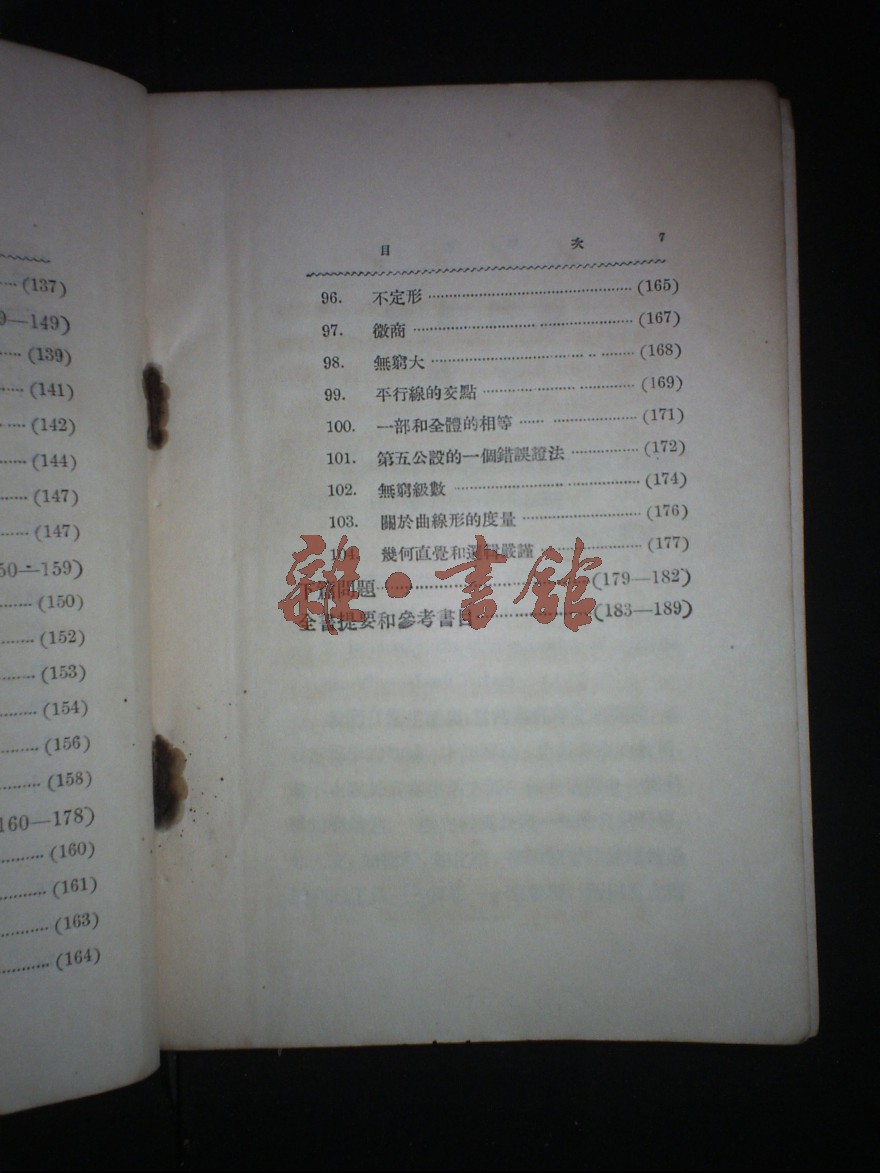 (137)
9—149)
(139)
(141)
(142)
(144)
(147)
(147)
50—159)
(150)
(152)
(153)
(154)
(156)
(158)
160—178)
(160)
(161)
(163)
(164)
目 次 7
96. 不定形 (165)
97. 微商 (167)
98. 無窮大 (168)
99. 平行線的交點 (169)
100. 一部和全體的相等 (171)
101. 第五公設的一個錯誤證法 (172)
102. 無窮級數 (174)
103. 關於曲線形的度量 (176)
104. 幾何直覺和邏輯嚴謹 (177)
下篇問題 (179—182)
全書提要和參考書目 (183—189)
雜·書館